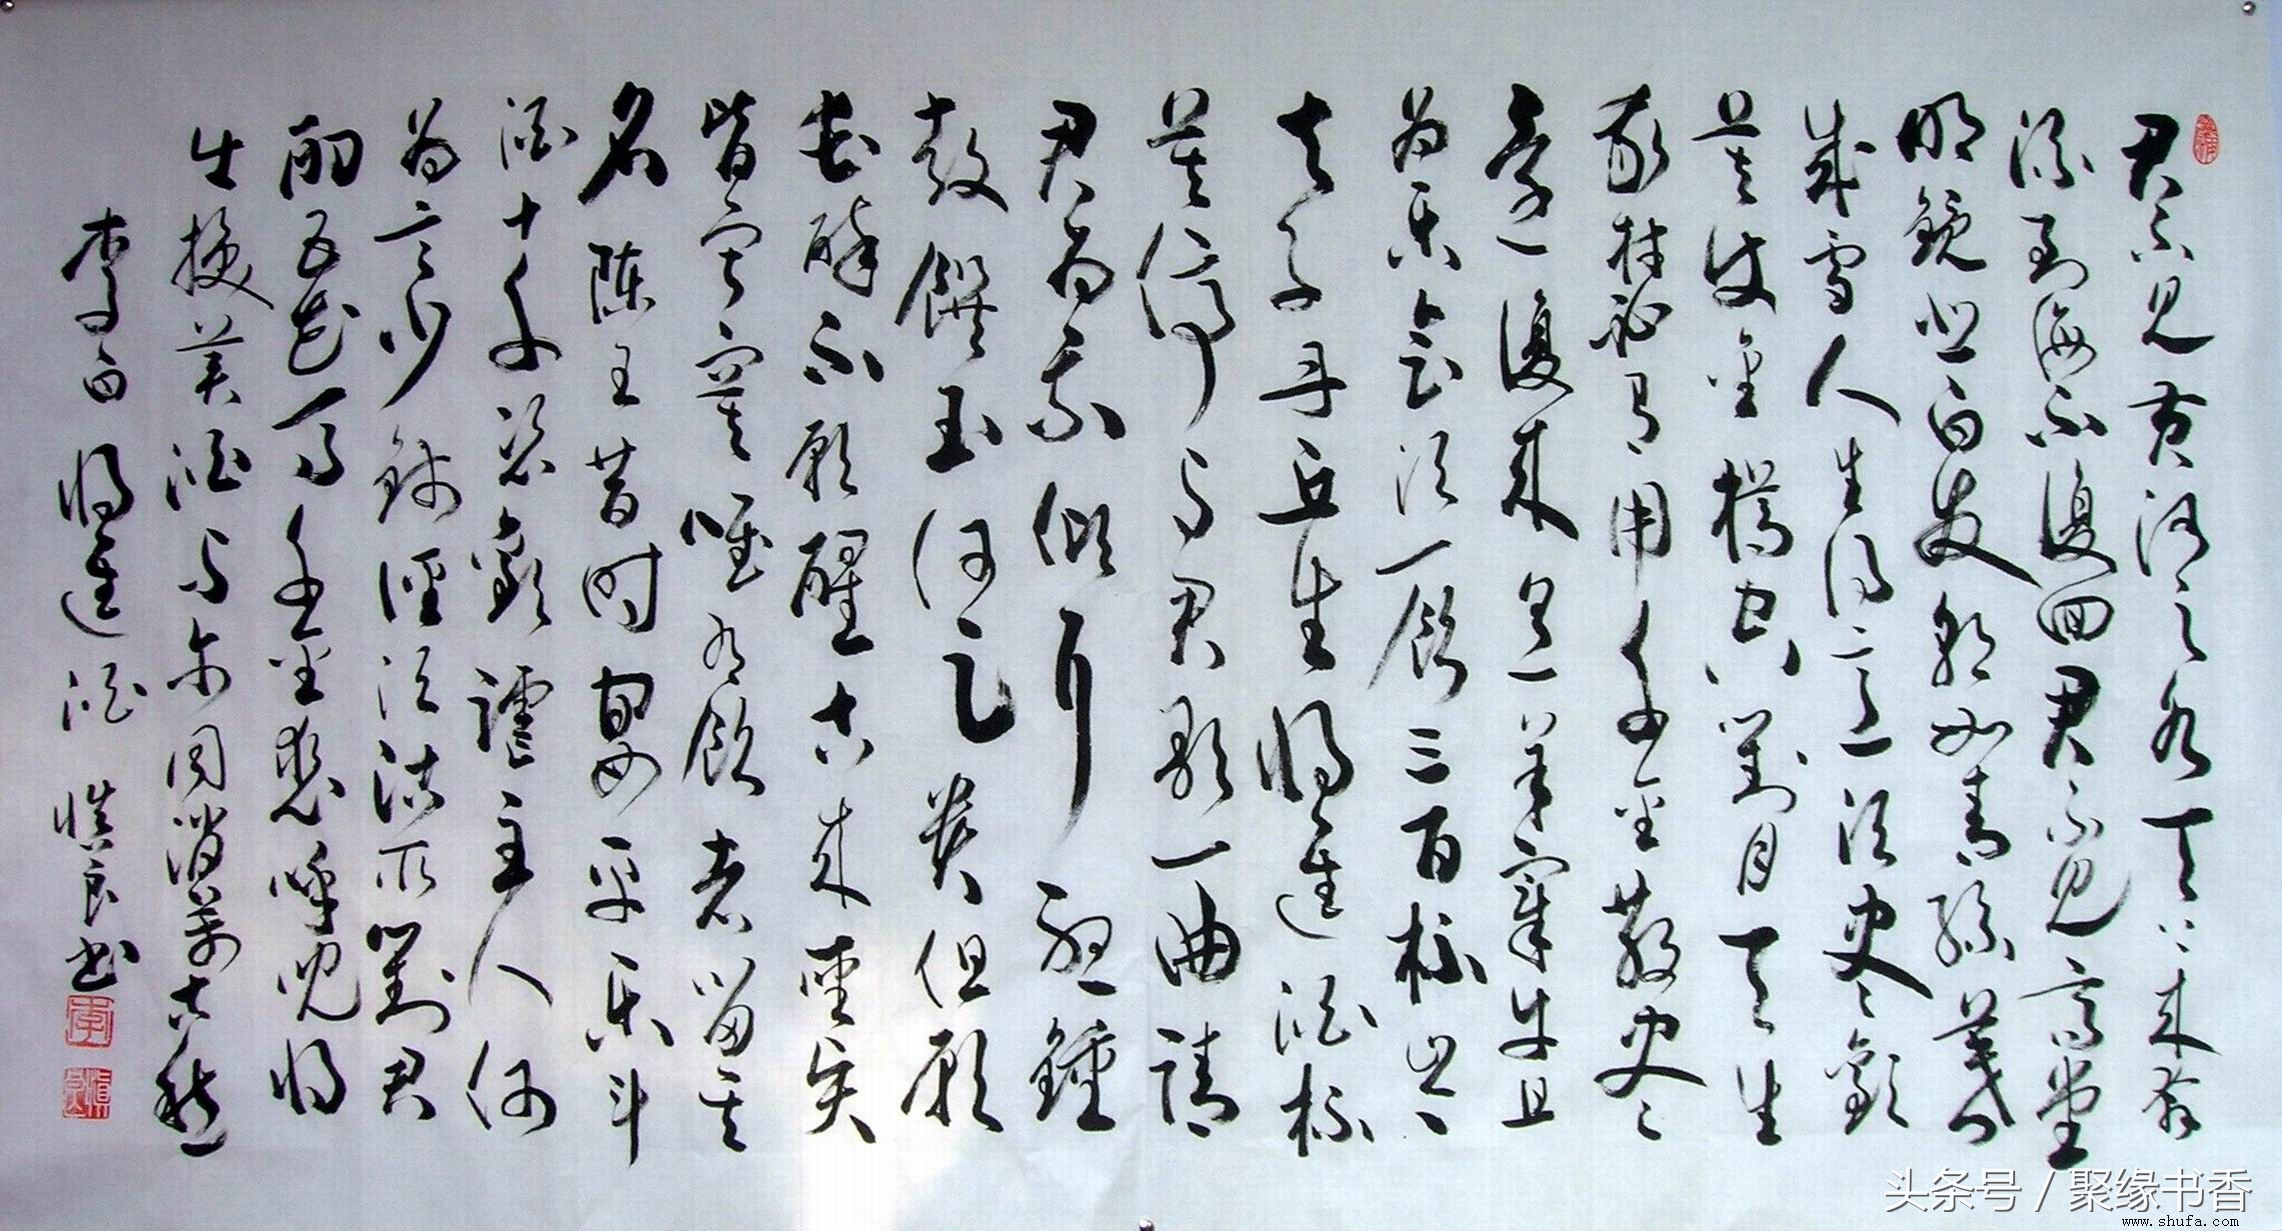 君不见黄河之水天上来奔
流到海不復回君不见高堂
明镜悲白发朝如青丝暮
成雪人生得意须尽歡
莫使金樽空對月天生
我材必有用千金散尽
还復来烹羊宰牛且
为乐会须一饮三百杯岑
夫子丹丘生将進酒杯
莫停与君歌一曲請
君为我倾耳听鐘
鼓饌玉何足贵但願
长醉不願醒古来聖贤
皆寂寞唯有饮者留其
名陈王昔时宴平乐斗
酒十千恣歡謔主人何
为言少钱径须沽取對君
酌五花马千金裘呼児将
出换美酒与尔同消萬古愁
李白 将進酒 慎良书
李
慎良
头条号 / 聚缘书香
www.shufa.com